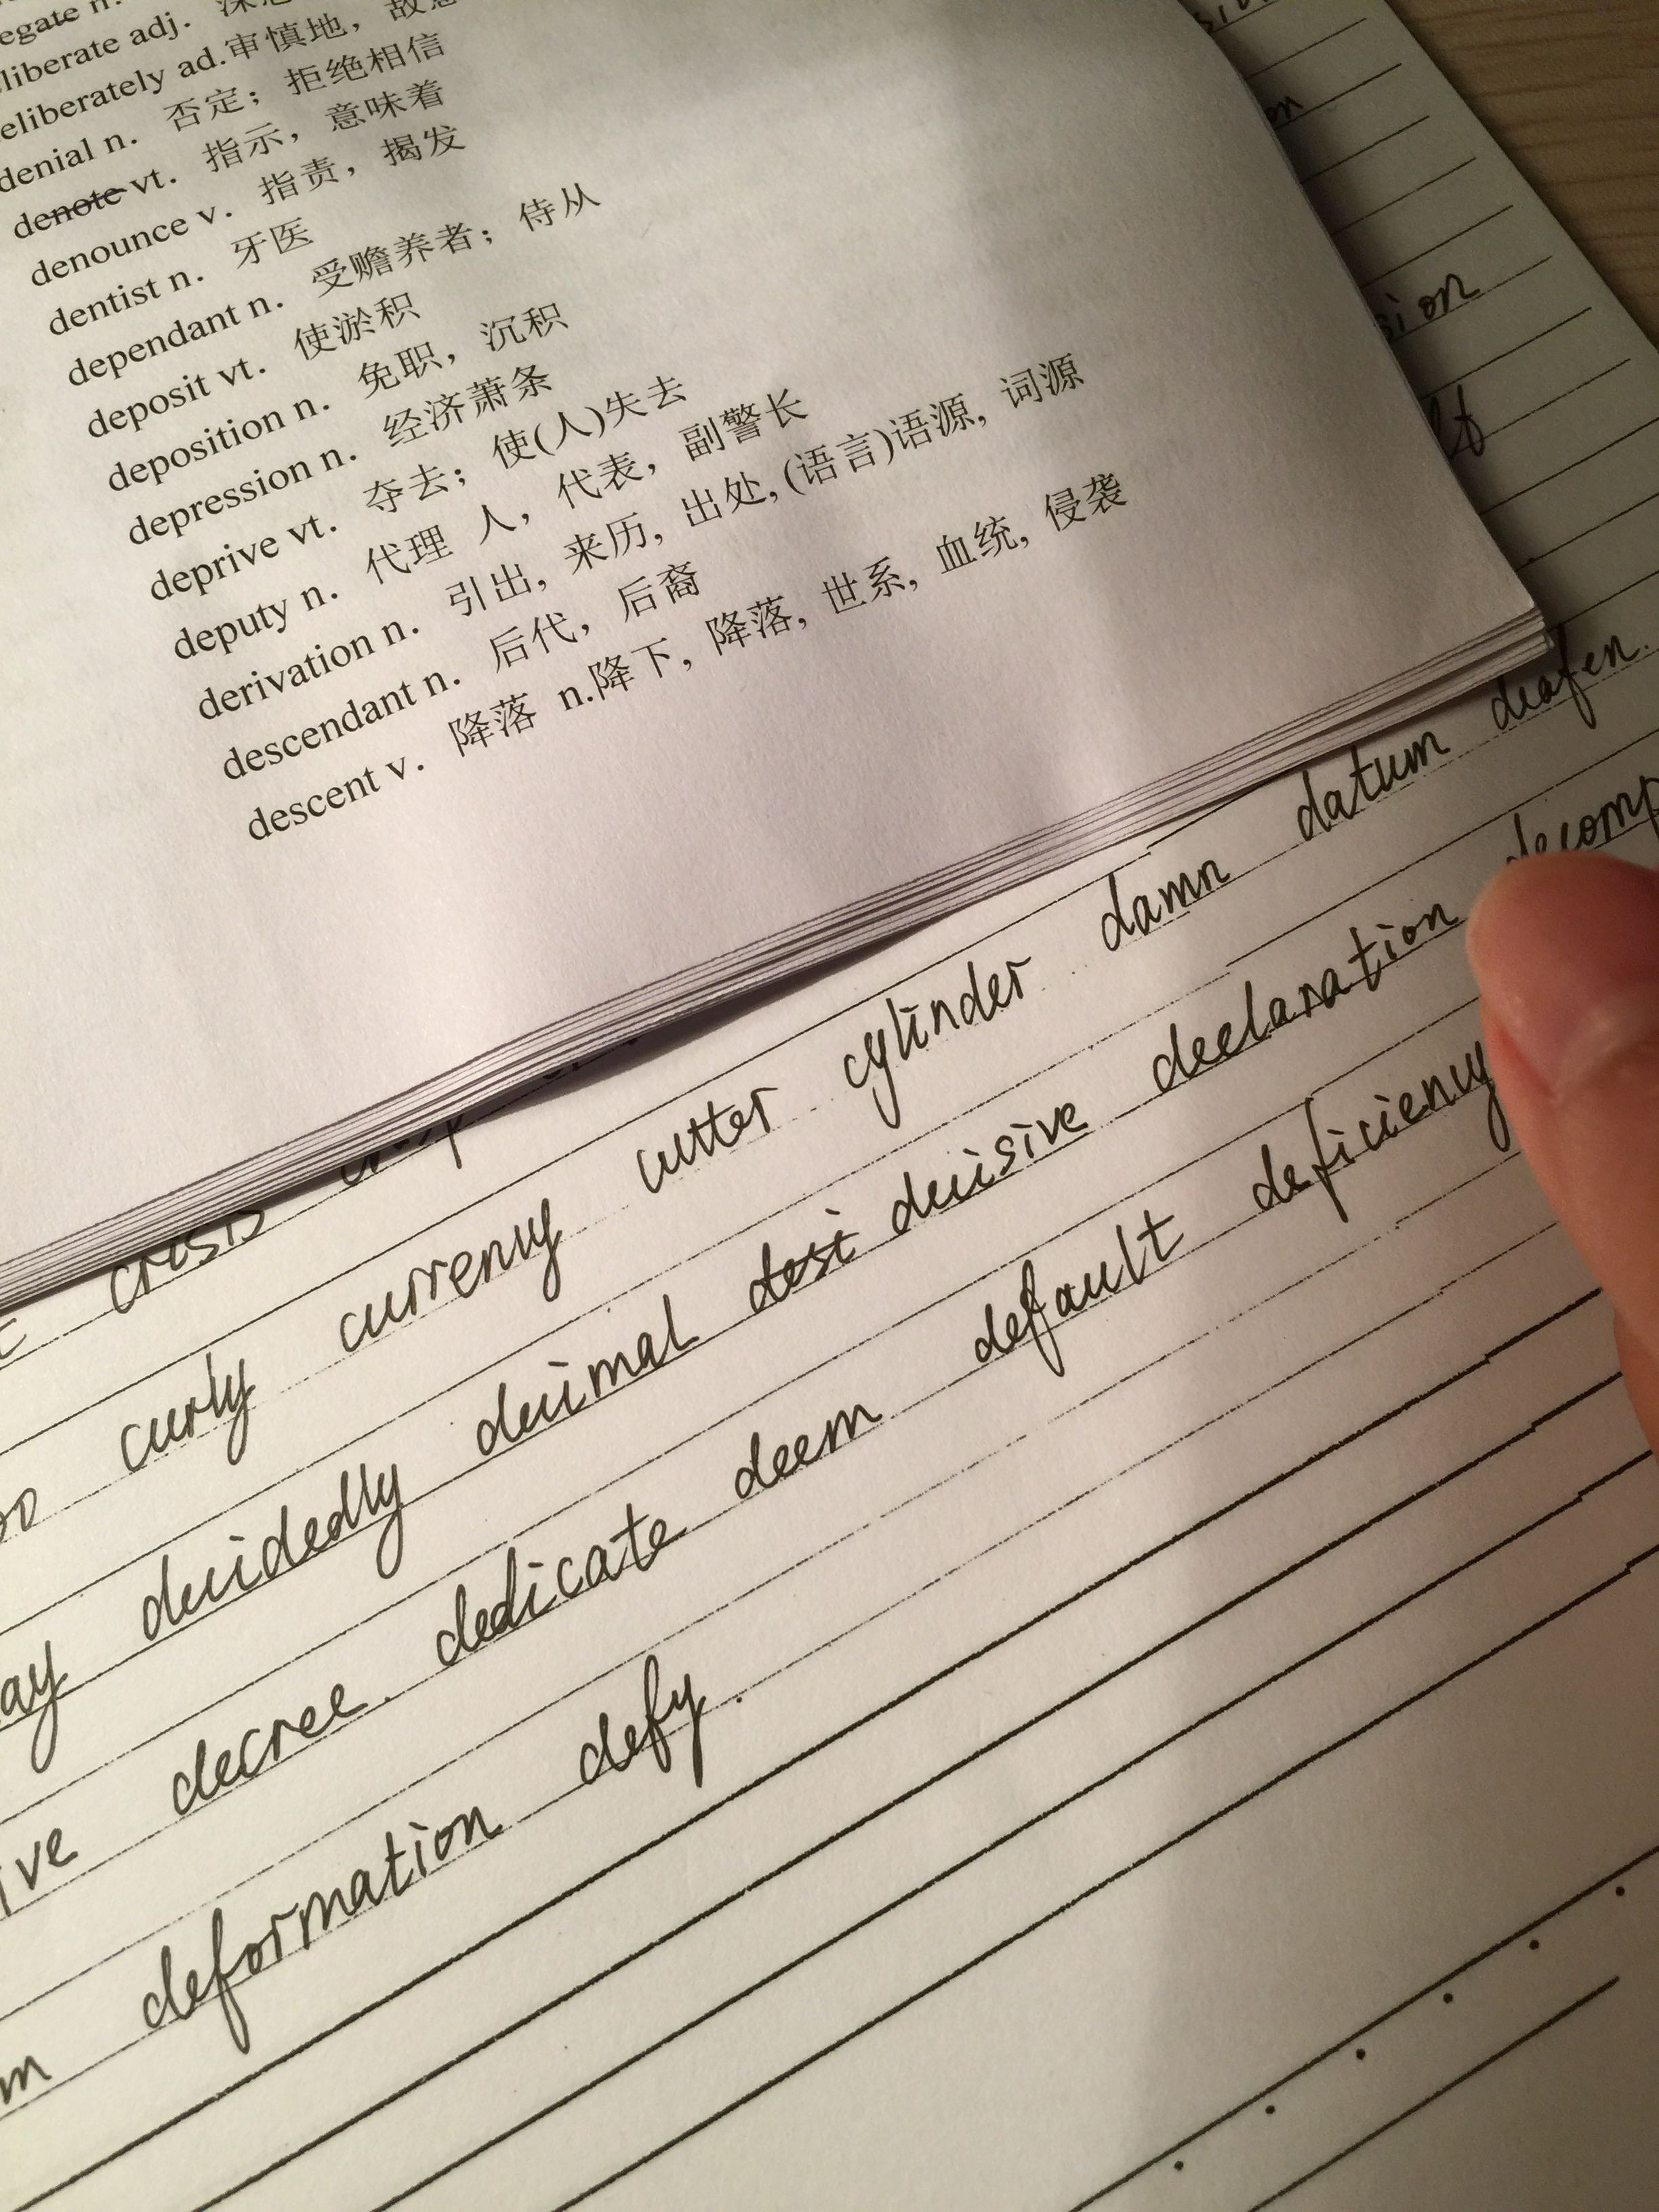 liberate adj.
eliberately ad.审慎地，
denial n. 否定；拒绝相信
denote vt. 指示，意味着
denounce v. 指责，揭发
dentist n. 牙医
dependant n. 受赡养者；侍从
deposit vt. 使淤积
deposition n. 免职，沉积
depression n. 经济萧条
deprive vt. 夺去；使(人)失去
deputy n. 代理 人，代表，副警长
derivation n. 引出，来历，出处，(语言)语源，词源
descendant n. 后代，后裔
descent v. 降落 n.降下，降落，世系，血统，侵袭
sion
crisis
curly currency cutter cylinder damn datum deafen.
ay decidedly decimal desi decisive declaration decomp
ive decree. dedicate deem default deficiency
m deformation defy.